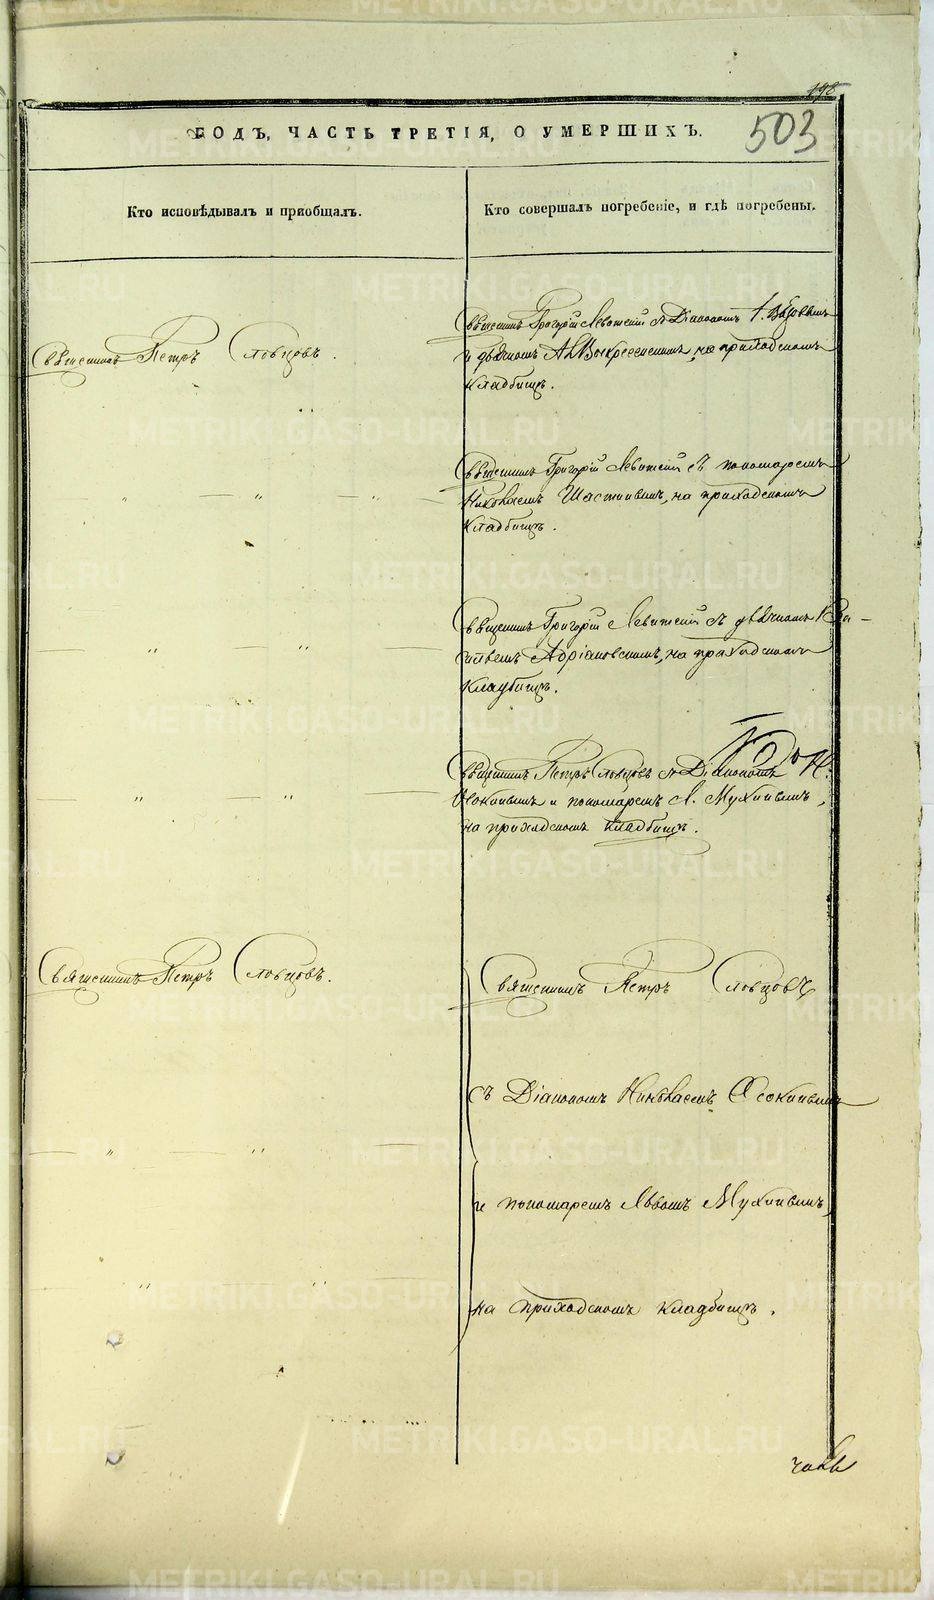 198
503
ГОДЪ, ЧАСТЬ ТРЕТІЯ, О УМЕРШИХЪ.
Кто исповѣдывалъ и пріобщалъ.
Кто совершалъ погребеніе, и гдѣ погребены.
Священникъ Петръ Словцовъ.
Священникъ Григорій Левитскій съ Діакономъ
и дьячкомъ А. Воскресенскимъ, на приходскомъ
кладбищѣ.
Священникъ Григорій Левитскій съ пономаремъ
Николаемъ на приходскомъ
кладбищѣ.
Священникъ Григорій Левитскій съ дьячкомъ
Адріановскимъ, на приходскомъ
кладбищѣ.
Священникъ Петръ Словцовъ съ Діакономъ Н.
Ѳокинымъ и пономаремъ Л. Мухинымъ,
на приходскомъ кладбищѣ.
Священникъ Петръ Словцовъ.
Священникъ Петръ Словцовъ
съ Діакономъ Николаемъ Ѳокинымъ
и пономаремъ Львомъ Мухинымъ,
на приходскомъ кладбищѣ.
METRIKI.GASO-URAL.RU